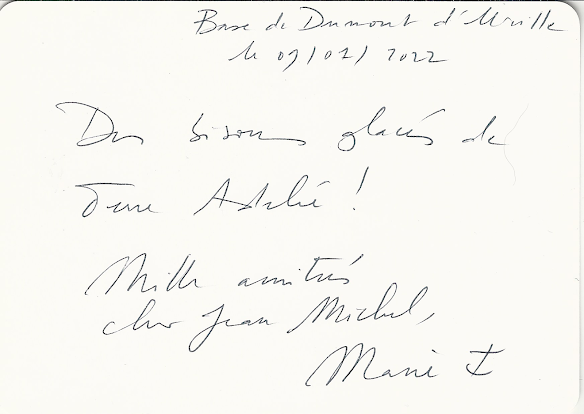 Base de Dumont d'Urville
le 09/02/2022
Des bisous glacés de
Terre Adélie !
Mille amitiés
cher Jean Michel,
Marie